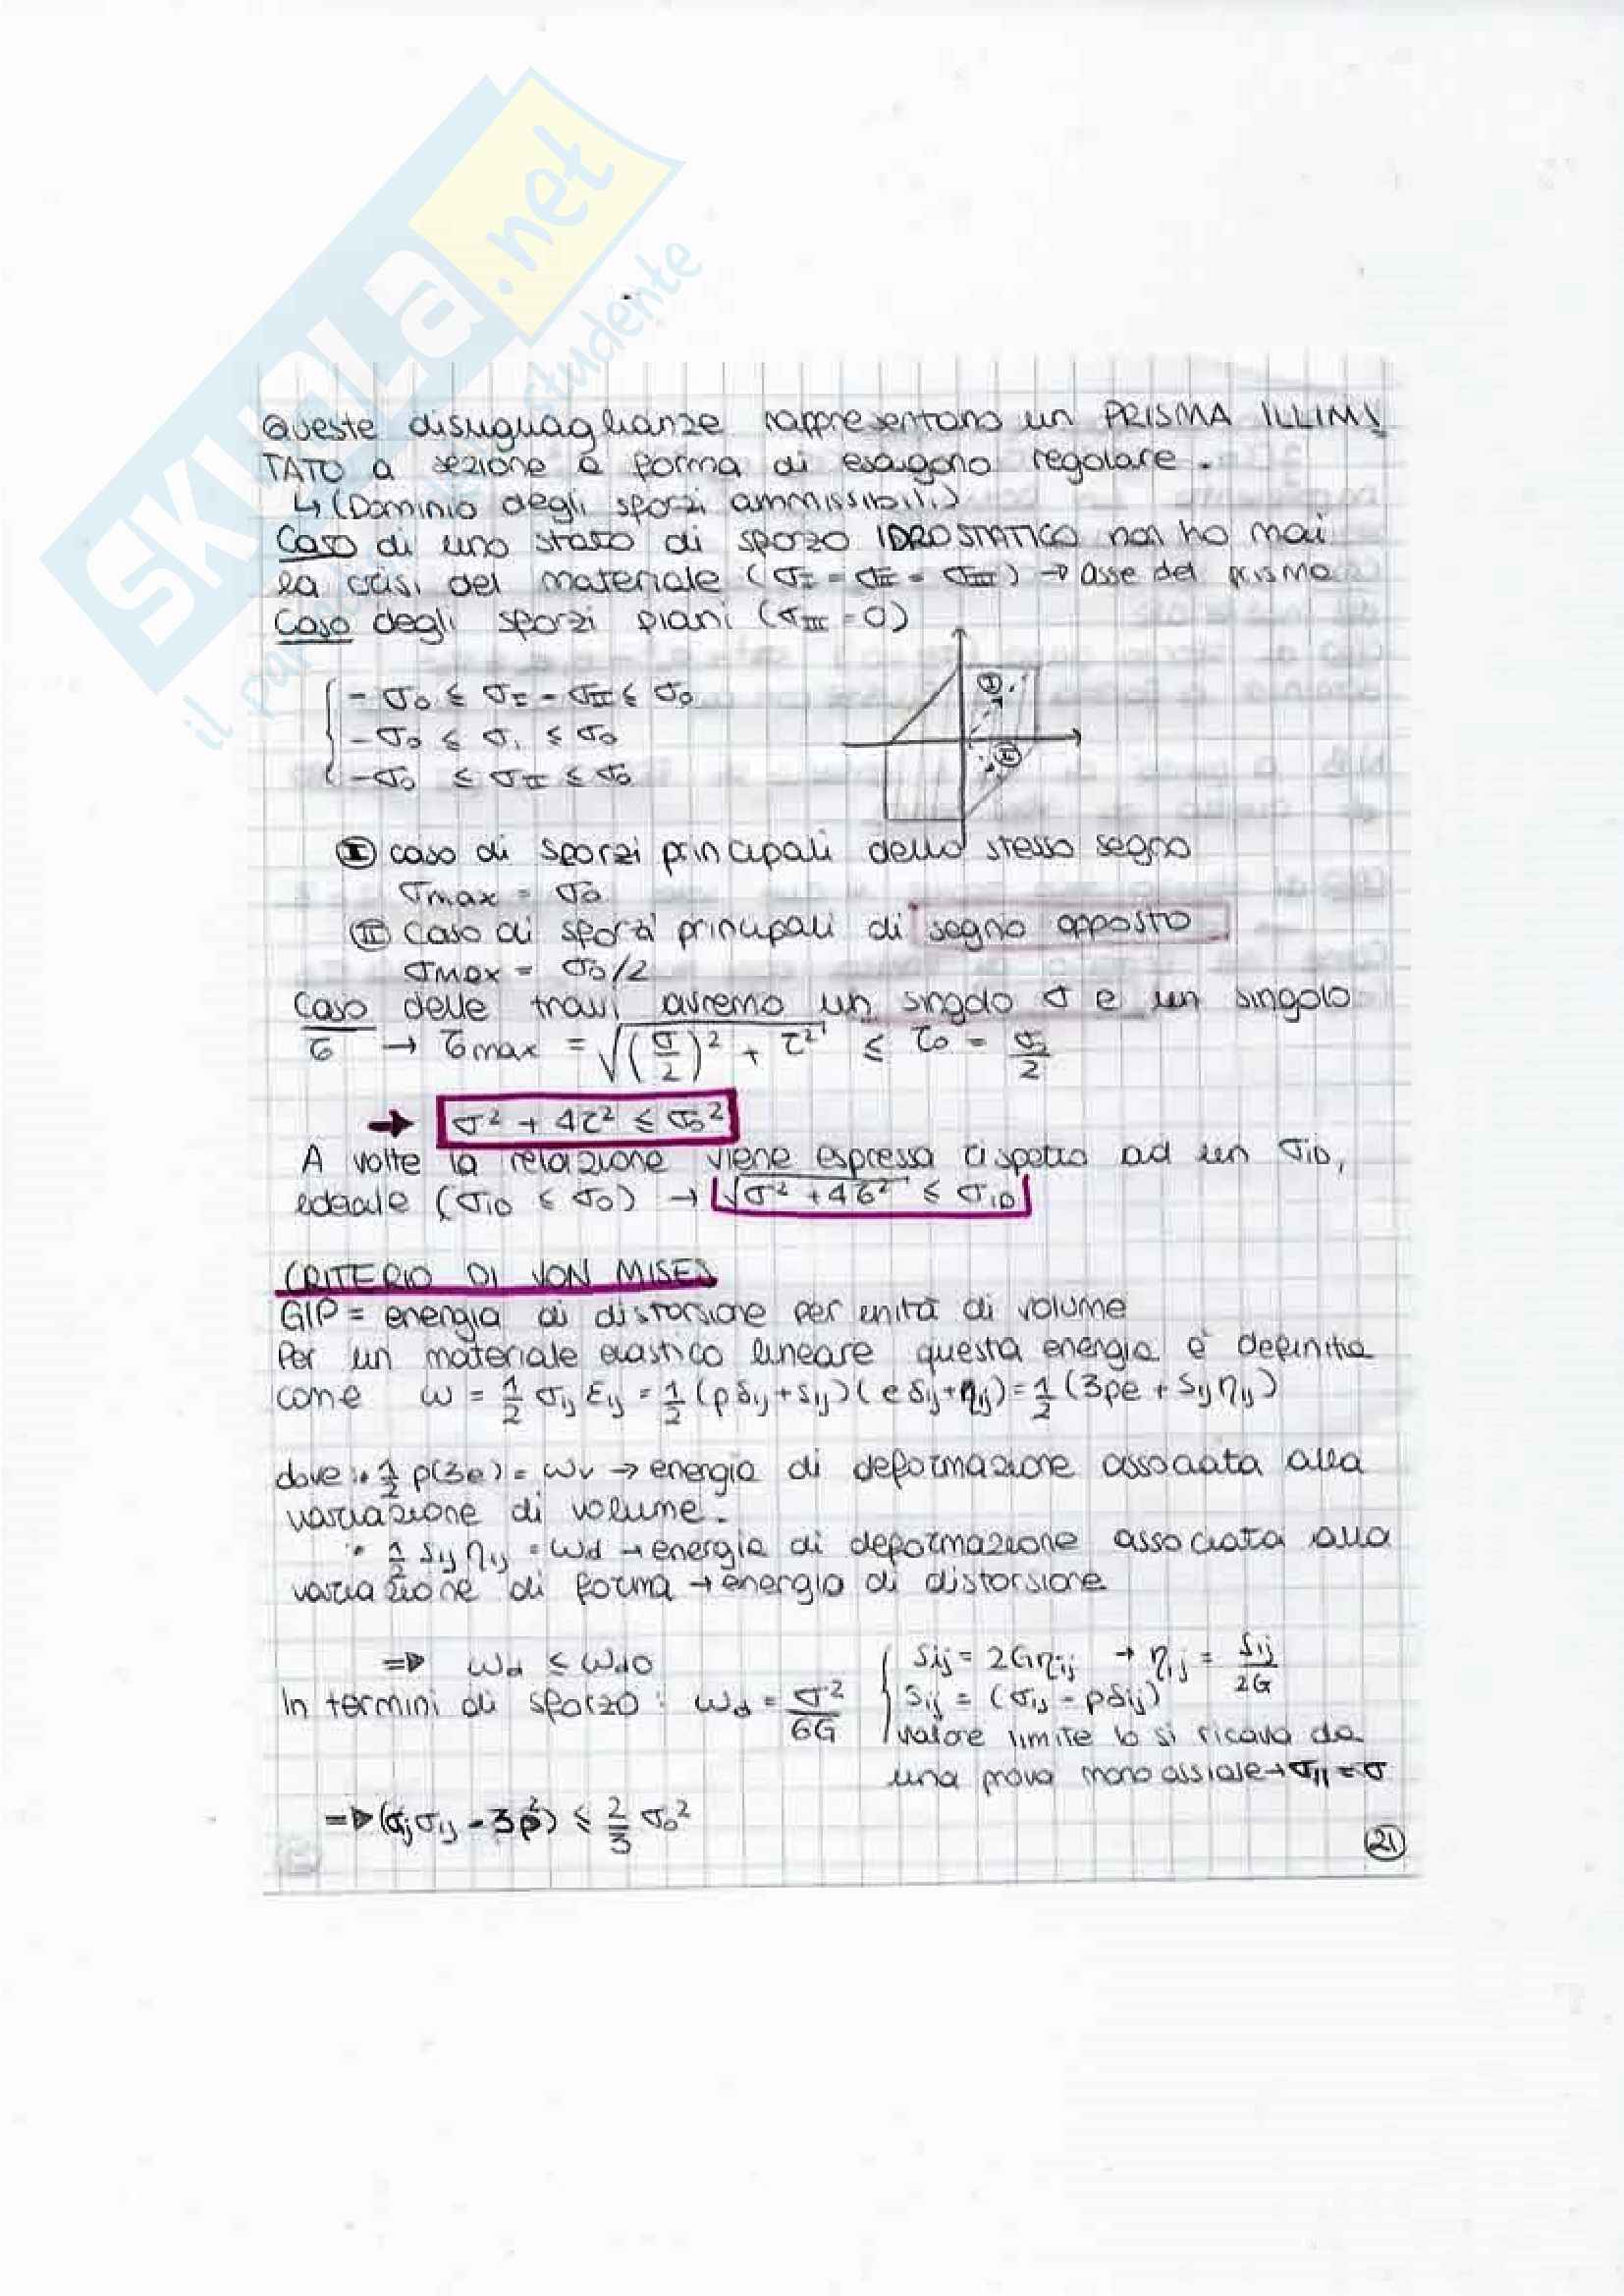 SKUOLA.net
il paradiso dello studente
Queste disuguaglianze rappresentano un PRISMA ILLIMI
TATO a sezione a forma di esagono regolare.
↳ (Dominio degli sforzi ammissibili)
Caso di uno stato di sforzo IDROSTATICO non ho mai
la crisi del materiale (σI = σII = σIII) → asse del prisma
Caso degli sforzi piani (σIII = 0)
- σ0 ≤ σI - σII ≤ σ0
- σ0 ≤ σI ≤ σ0
- σ0 ≤ σII ≤ σ0
I
II
I caso di sforzi principali dello stesso segno
σmax = σ0
II caso di sforzi principali di segno opposto
σmax = σ0/2
Caso delle travi avremo un singolo σ e un singolo
τ → τmax = √((σ/2)² + τ²) ≤ τ0 = σ0/2
→ σ² + 4τ² ≤ σ0²
A volte la relazione viene espressa rispetto ad un σID,
ideale (σID ≤ σ0) → √(σ² + 4τ²) ≤ σID
CRITERIO DI VON MISES
GIP = energia di distorsione per unità di volume
Per un materiale elastico lineare questa energia è definita
come ω = 1/2 σij εij = 1/2 (pδij + sij)(eδij + ηij) = 1/2 (3pe + sij ηij)
dove: • 1/2 p(3e) = ωv → energia di deformazione associata alla
variazione di volume.
• 1/2 sij ηij = ωd → energia di deformazione associata alla
variazione di forma → energia di distorsione
=> ωd ≤ ωd0
sij = 2Gηij → ηij = sij/2G
In termini di sforzo: ωd = σ²/6G
sij = (σij - pδij)
valore limite lo si ricava da
una prova mono assiale → σ11 = σ
=> (σij σij - 3p²) ≤ 2/3 σ0²
21